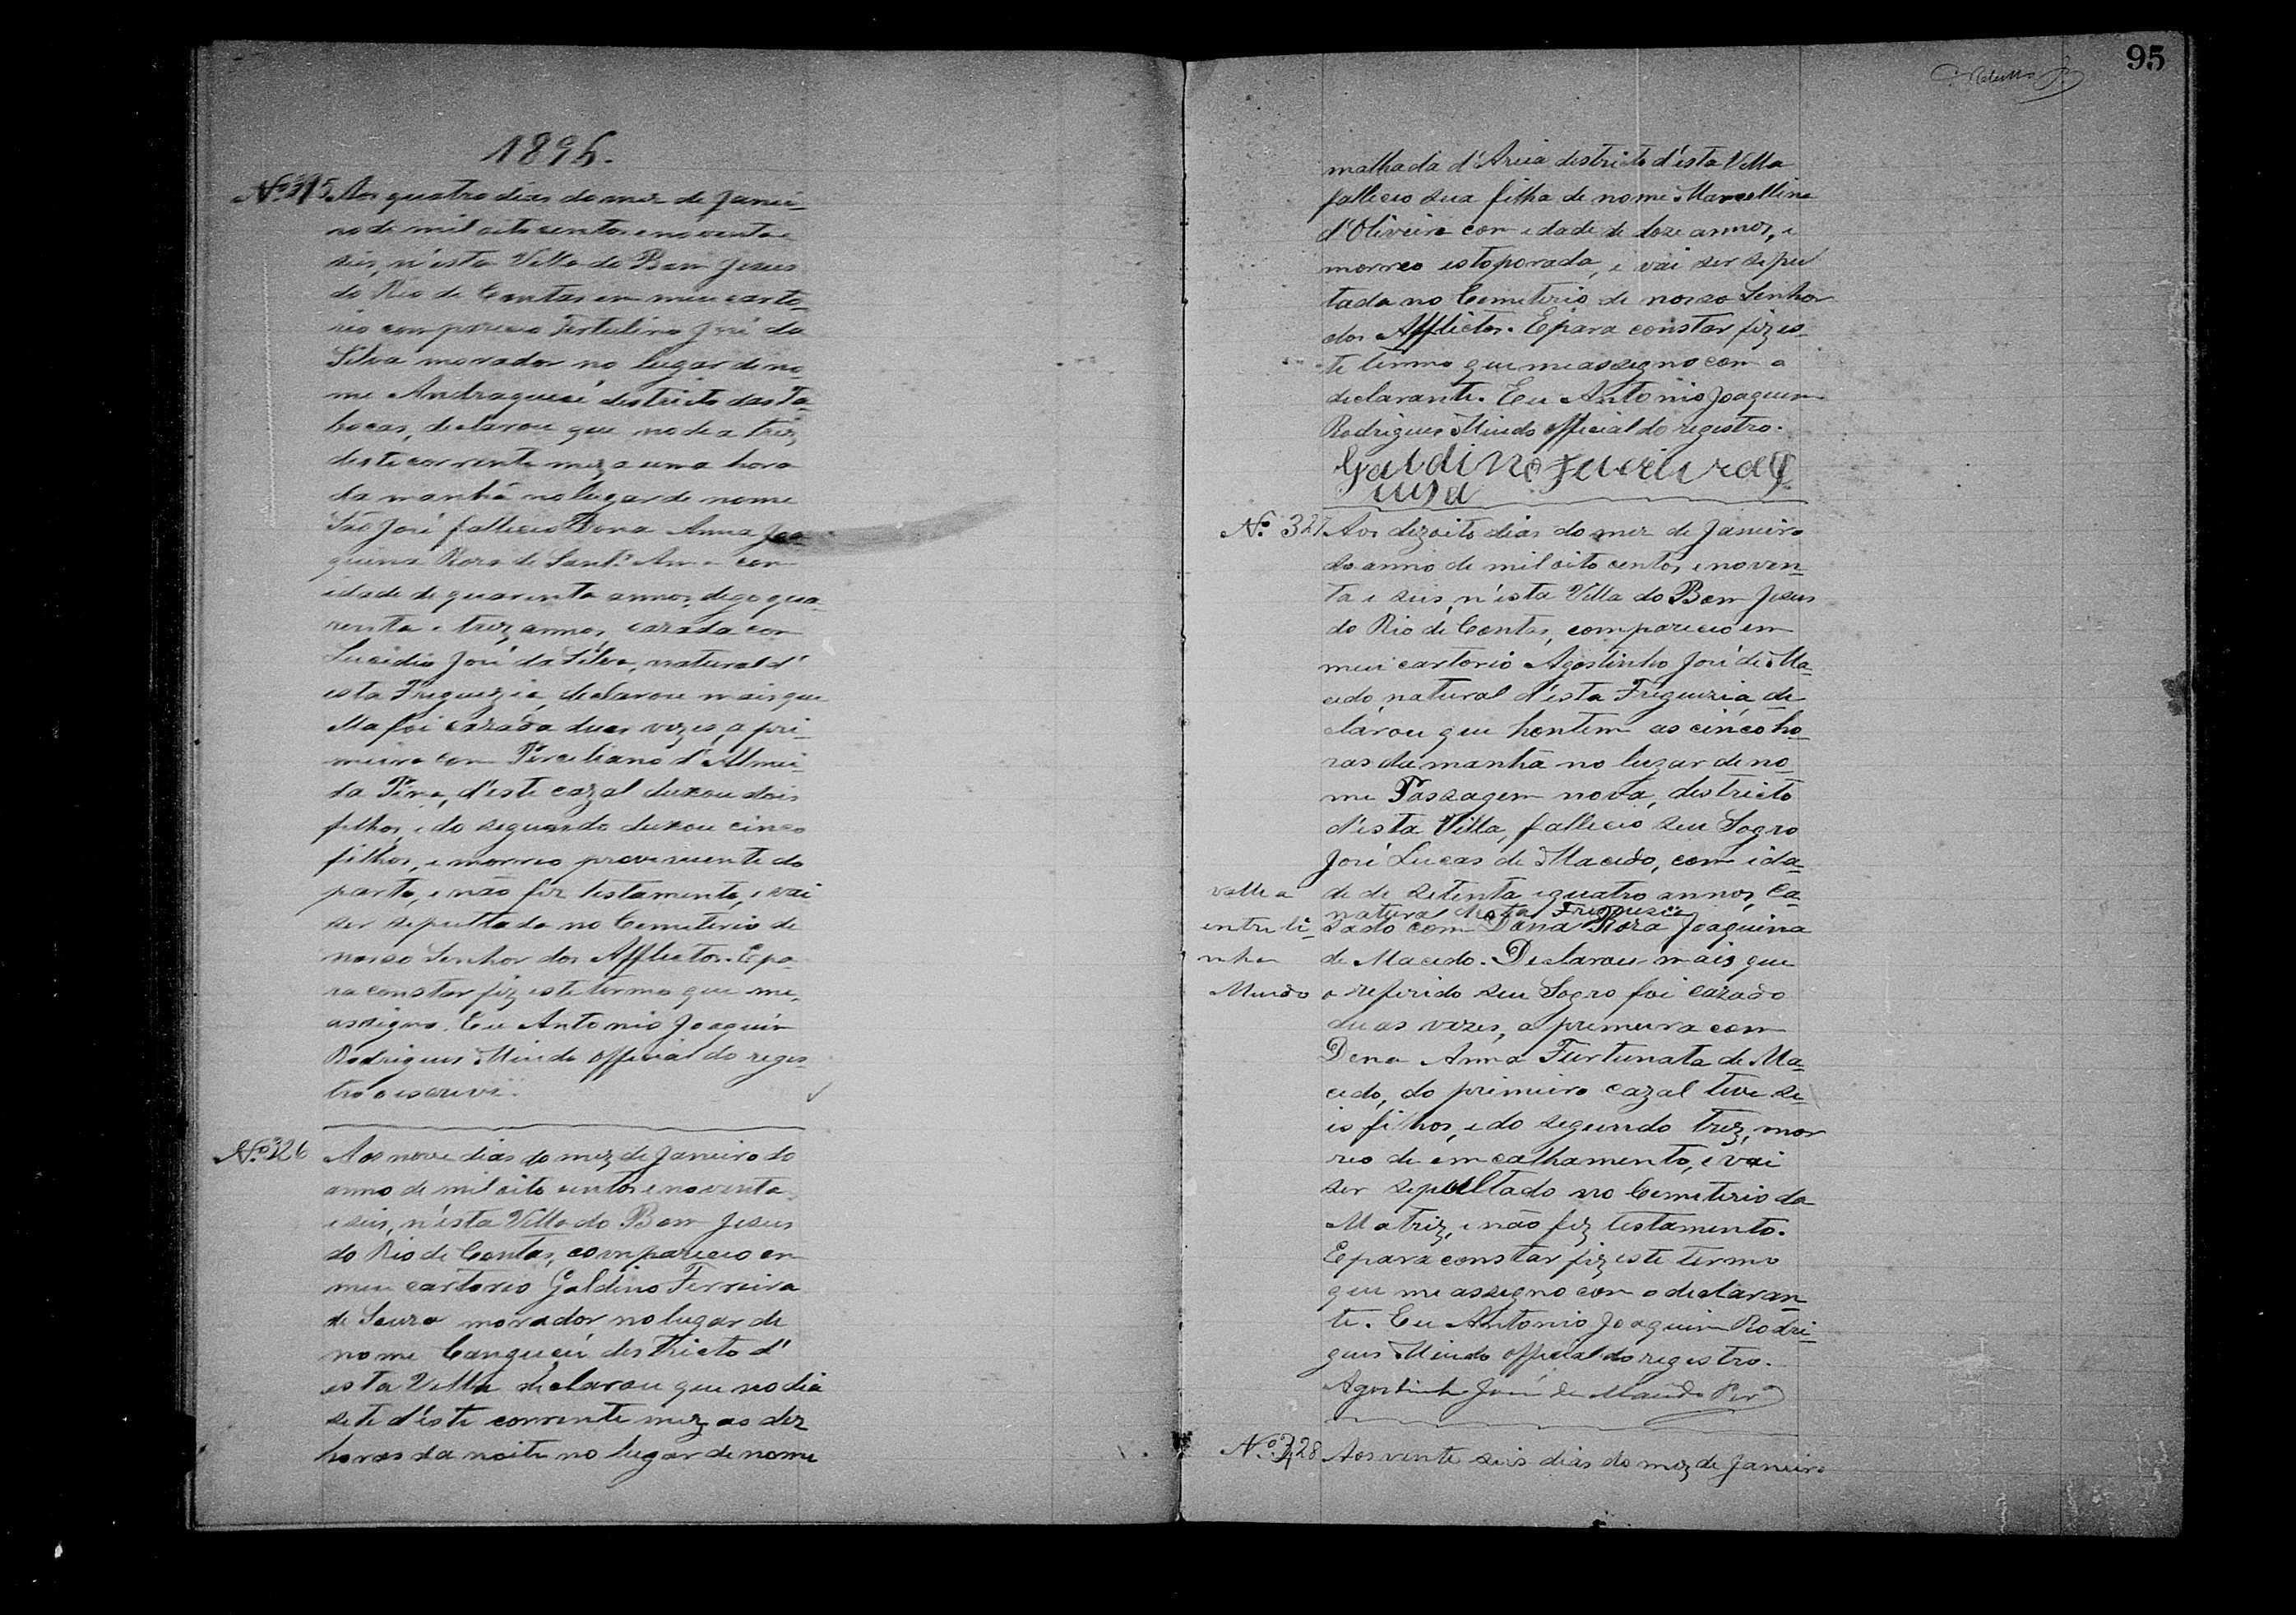 1896.
Nº 325 Aos quatro dias do mez de Janei-
ro de mil oito centos e noventa e
seis, n'esta Villa do Bom Jesus
do Rio de Contas em meu carto-
rio compareceo Tertulino José da
Silva morador no lugar de no-
me Andraquecé districto das Ta-
bocas, declarou que no dia trez
deste corrente mez a uma hora
da manhã no lugar de nome
São José falleceo Dona Anna Joa-
quina Roza de Sant' Anna com
idade de quarenta annos, digo qua-
renta e trez annos, cazada com
Lucidio José da Silva, natural d'
esta Freguezia, declarou mais que
Ella foi cazada duas vezes, a pri-
meira com Perciliano d'Almei-
da Pina, d'este cazal deixou dois
filhos, e do segundo deixou cinco
filhos, e morreo proveniente do
parto, e não fez testamento, e vai
ser sepultada no Cemeterio de
nosso Senhor dos Afflictos. E pa-
ra constar fiz este termo que me
assigno. Eu Antonio Joaquim
Rodrigues Mindo official do regis-
tro o escrevi.
Nº 326 Aos nove dias do mez de Janeiro do
anno de mil oito centos e noventa
e seis, n'esta Villa do Bom Jesus
do Rio de Contas, compareceo em
meu cartorio Galdino Ferreira
de Souza morador no lugar de
nome Canguçú districto d'
esta Villa declarou que no dia
sete d'este corrente mez as dez
horas da noite no lugar de nome
95
malhada d'Areia districto d'esta Villa
falleceo sua filha de nome Marcellina
d'Oliveira com idade de doze annos, e
morreo estoporada, e vai ser sepul
tada no Cemeterio de nosso Senhor
dos Afflictos. E para constar fiz es-
te termo que me assigno com o
declarante. Eu Antonio Joaquim
Rodrigues Mindo official do registro.
Galdino Fereira de S
uza
Nº 327 Aos dezoito dias do mez de Janeiro
do anno de mil oito centos e noven-
ta e seis, n'esta Villa do Bom Jesus
do Rio de Contas, compareceo em
meu cartorio Agostinho José de Ma-
cedo, natural d'esta Freguezia de-
clarou que hontem as cinco ho-
ras da manhã no lugar de no-
me Passagem nova, districto
d'esta Villa, falleceo seu Sogro
José Lucas de Macedo, com ida-
valle a de de setenta e quatro annos, ca-
natural desta Freguesia
entreli- zado com Dona Roza Joaquina
nha de Macedo. Declarou mais que
Mindo o referido seu Sogro foi cazado
duas vezes, a primeira com
Dona Anna Furtunata de Ma-
cedo, do primeiro cazal teve se-
is filhos, e do segundo trez, mor
reo de emcalhamento, e vai
ser sepultado no Cemeterio da
Matriz, e não fez testamento.
E para constar fiz este termo
que me assigno com o declaran-
te. Eu Antonio Joaquim Rodri-
gues Mindo official do registro.
Agostinho José de Macedo
Nº 328 Aos vente seis dias do mez de Janeiro